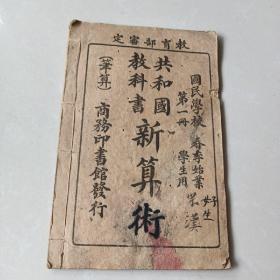 教育部審定
國民學校春季始業
第一冊 學生用
共和國
教科書
新算術
(筆算)
商務印書館發行